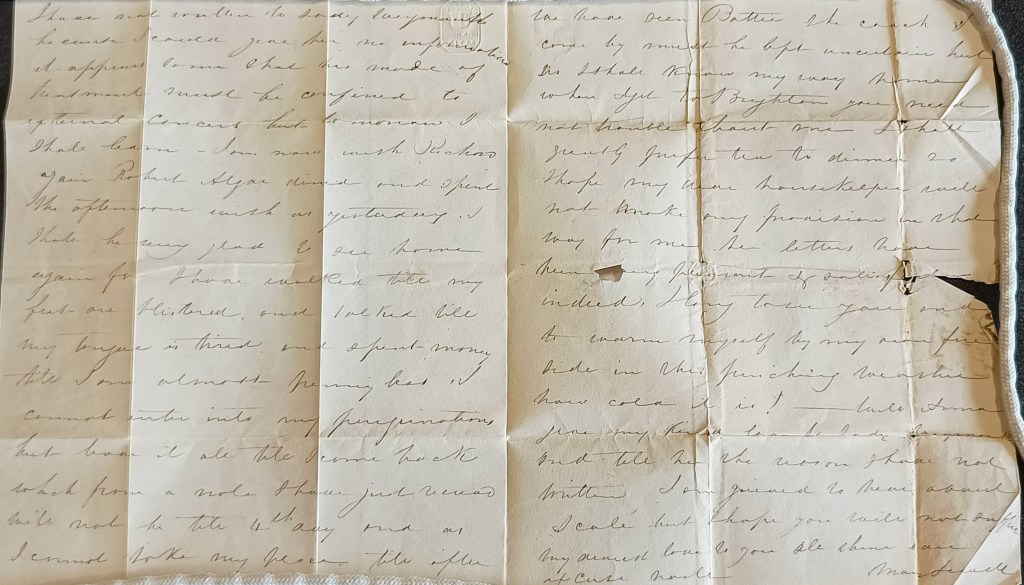 I have not written to Lady
because I could give her no information
it appears to me that his mode of
treatment must be confined to
external but tomorrow I
shall learn - I am now with Richard
again Robert Algar dined and spent
the afternoon with us yesterday. I
shall be very glad to see home
again for I have walked till my
feet are blistered, and talked till
my tongue is tired and spent money
till I am almost pennyless. I
cannot enter into my peregrinations
but leave it all till I come back
which from a note I have just received
will not be till 4th day and as
I cannot take my place till after
we have seen the coach I
come by must be left uncertain but
as I shall know my way home
when I get to Brighton you need
not trouble about me I shall
greatly prefer tea to dinner so
I hope my dear housekeeper will
not make any provision in that
way for me, her letters have
been very pleasant &
indeed, I long to see you and
to warm myself by my own fire
side in this pinching weather
how cold it is! —
give my kind love to Lady
and tell her the reason I have not
written I am grieved to hear about
but hope you will not suffer
my dearest love to you all
excuse haste Mary